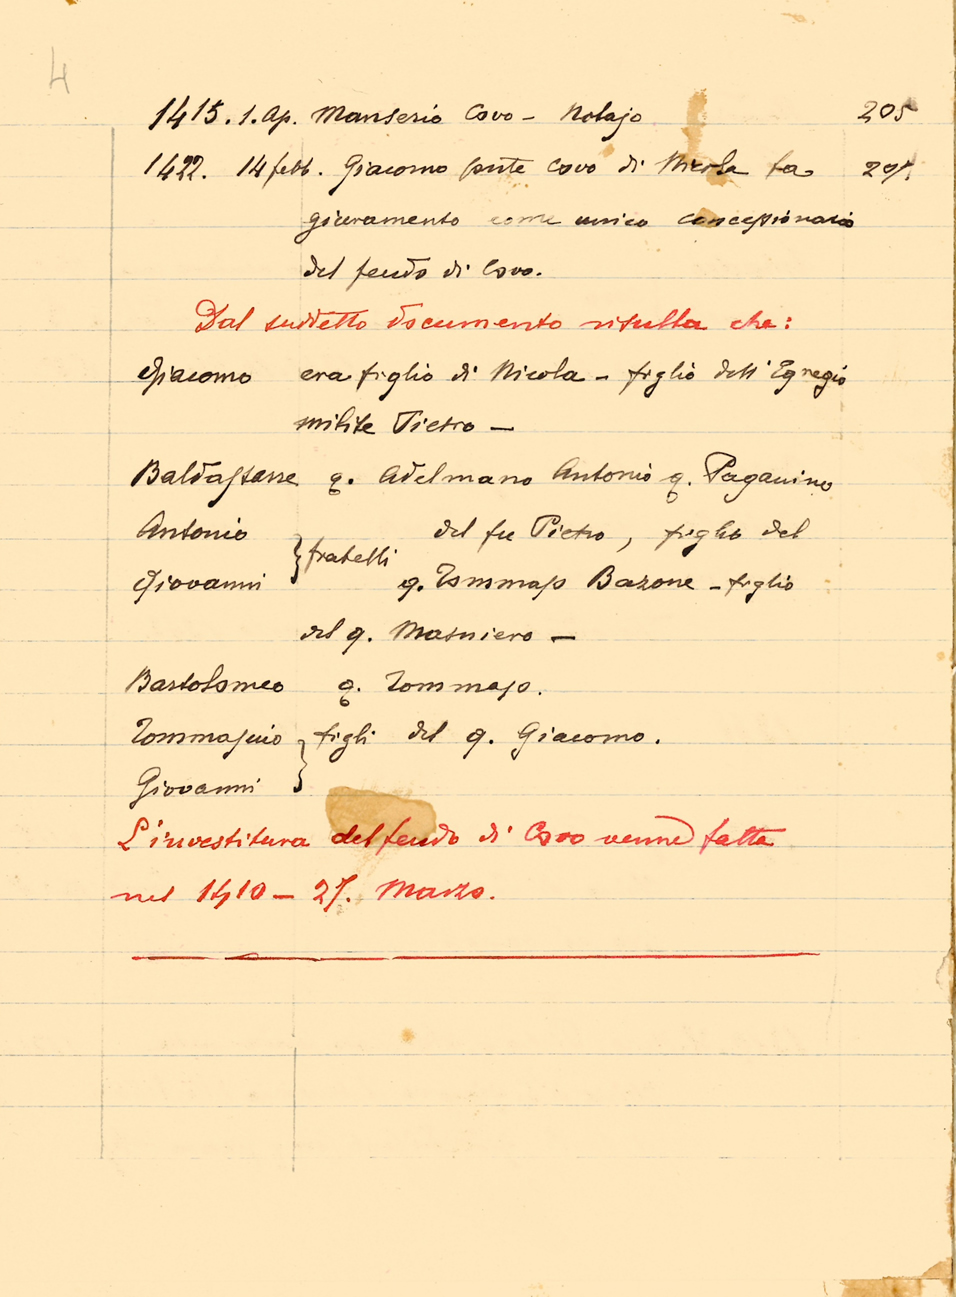 4
1415. 1. Ap. Manserio Covo - Notajo 205
1422. 14 febb. Giacomo Covo di Nicola fa
giuramento come unico concessionario
del feudo di Covo.
Dal suddetto documento risulta che:
Giacomo era figlio di Nicola - figlio dell'Egregio
milite Pietro —
Baldassarre q. Adelmano Antonio q. Paganino
Antonio del fu Pietro, figlio del
} fratelli
Giovanni q. Tommaso Bazone - figlio
del q. Masniero —
Bartolomeo q. Tommaso.
Tommasino } figli del q. Giacomo.
Giovanni
L'investitura del feudo di Covo venne fatta
nel 1410 - 27. Marzo.